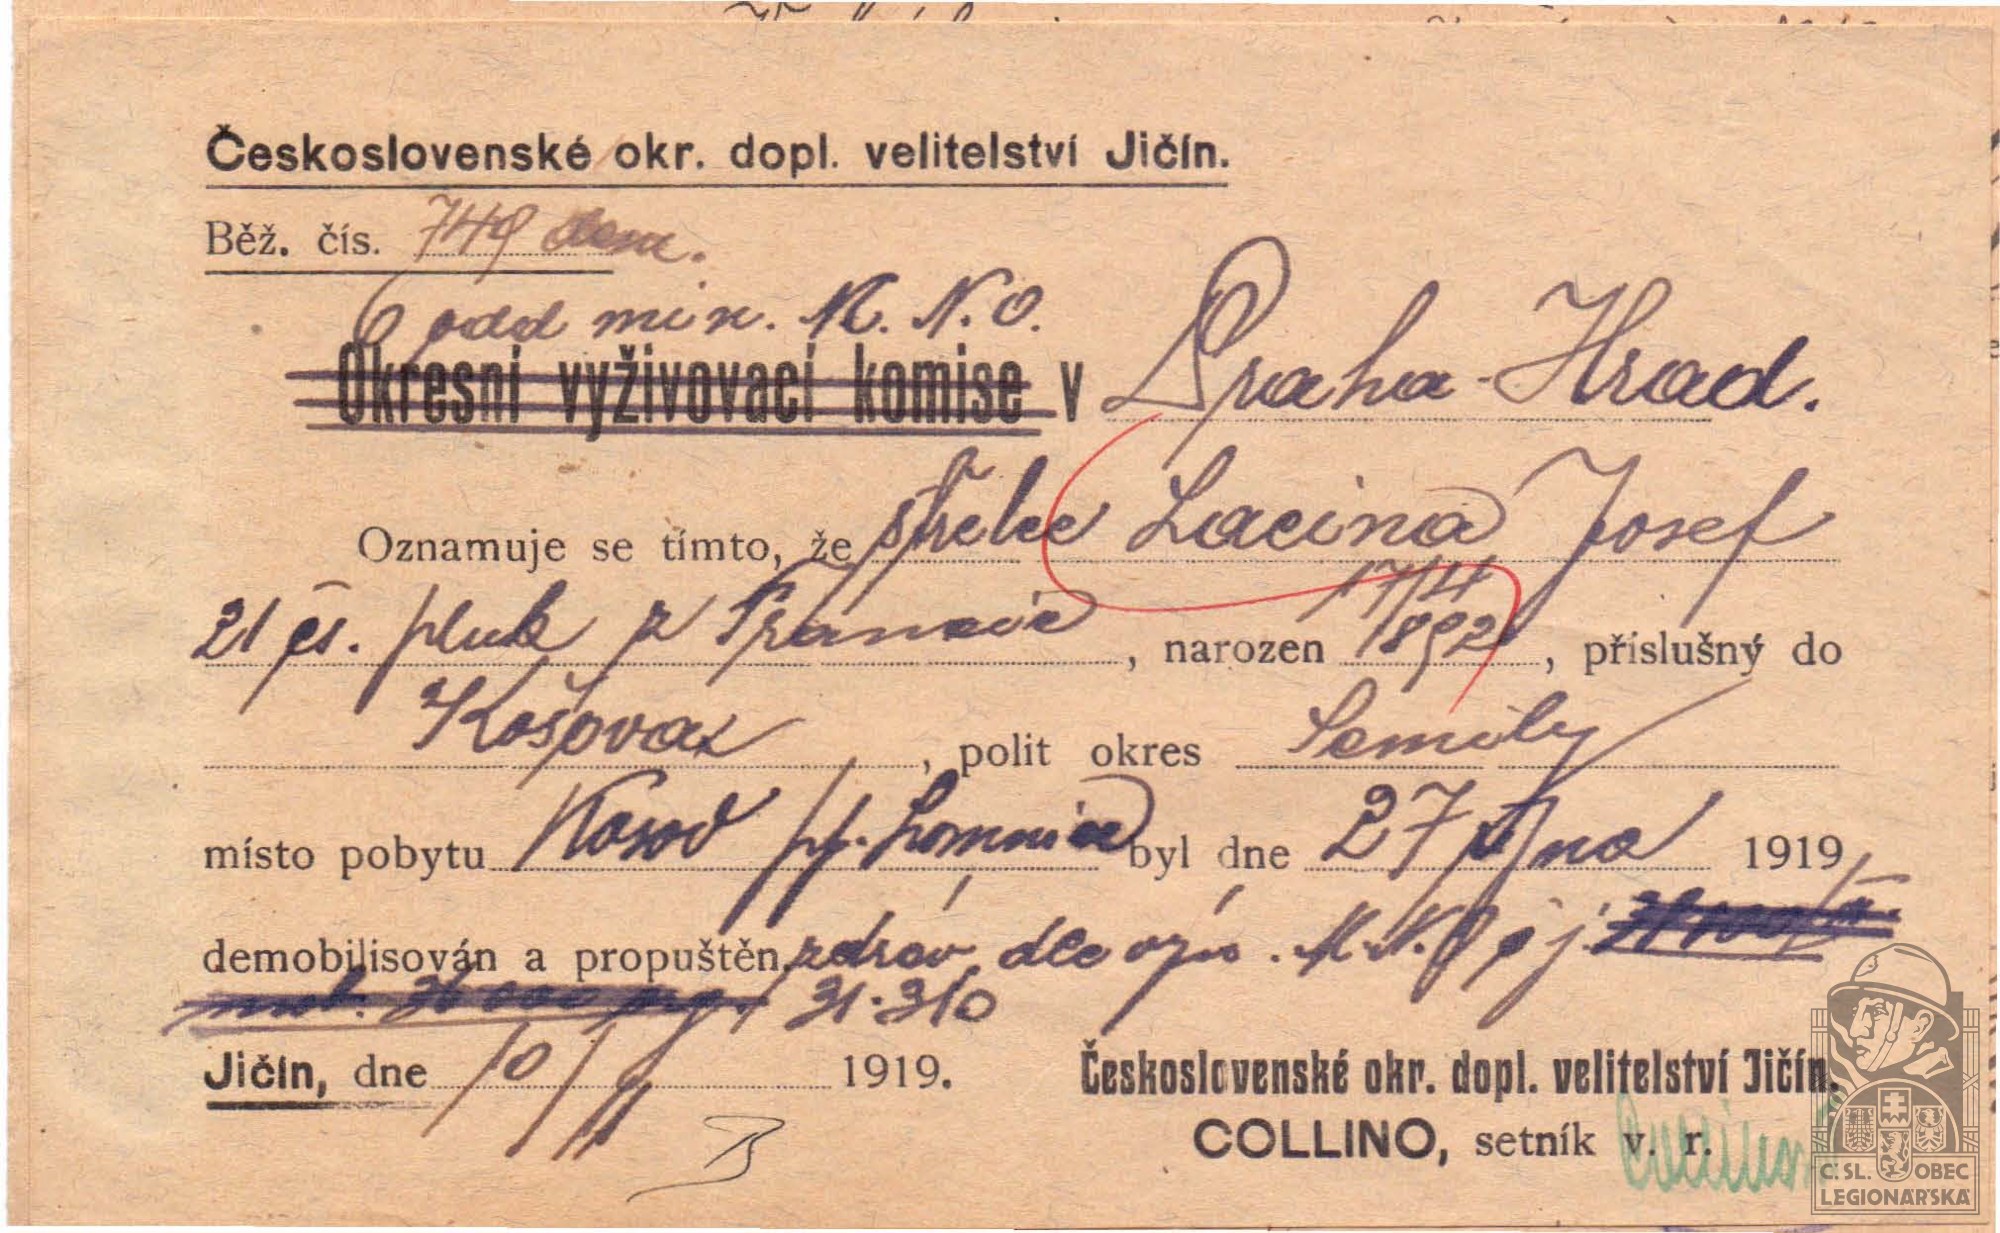 Československé okr. dopl. velitelství Jičín.
Běž. čís. 749 dem.
6 odd min. M. N. O.
Okresní vyživovací komise v Praha-Hrad.
Oznamuje se tímto, že střelec Lacina Josef
21 čs. pluk z Francie, narozen 17/4 1892, příslušný do
Košova, polit okres Semily
místo pobytu Kosov p/. Lomnice byl dne 27 října 1919
demobilisován a propuštěn, zdráv dle výn. M.N.O čj.
31.310
Jičín, dne 10/ 1919.
Československé okr. dopl. velitelství Jičín.
COLLINO, setník v. r.
Č. SL. OBEC
LEGIONÁŘSKÁ